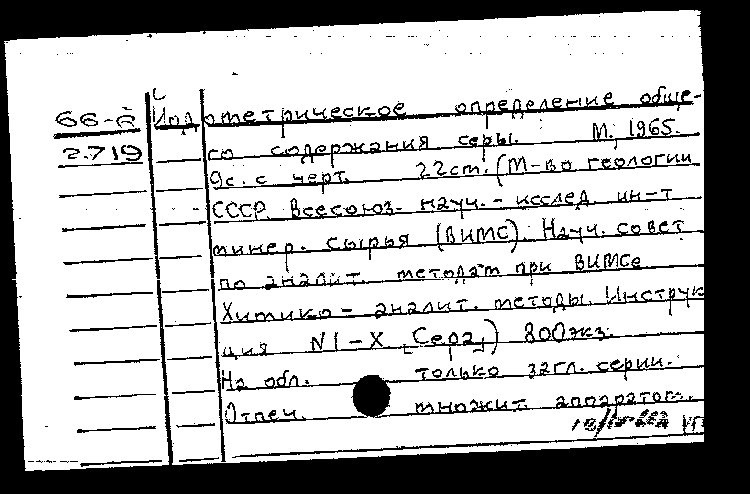 66-2
2.719
Иодометрическое определение обще-
го содержания серы. М., 1965.
9с. с черт. 22см. (М-во геологии
СССР. Всесоюз. науч.-исслед. ин-т
минер. сырья (ВИМС). Науч. совет
по аналит. методам при ВИМСе
Химико-аналит. методы. Инструк
ция N1-X [Сера]) 800экз.
На обл. только загл. серии.
Отпеч. множит. аппаратом.